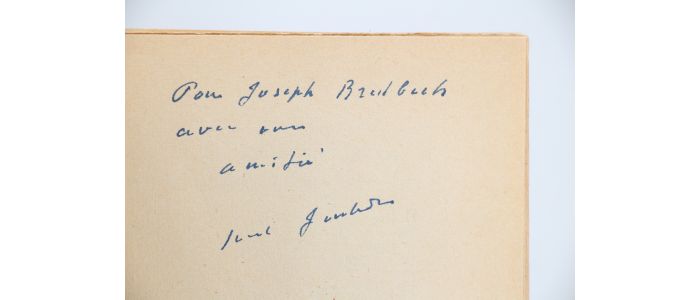 Pour Joseph Breitbach
avec mon
amitié